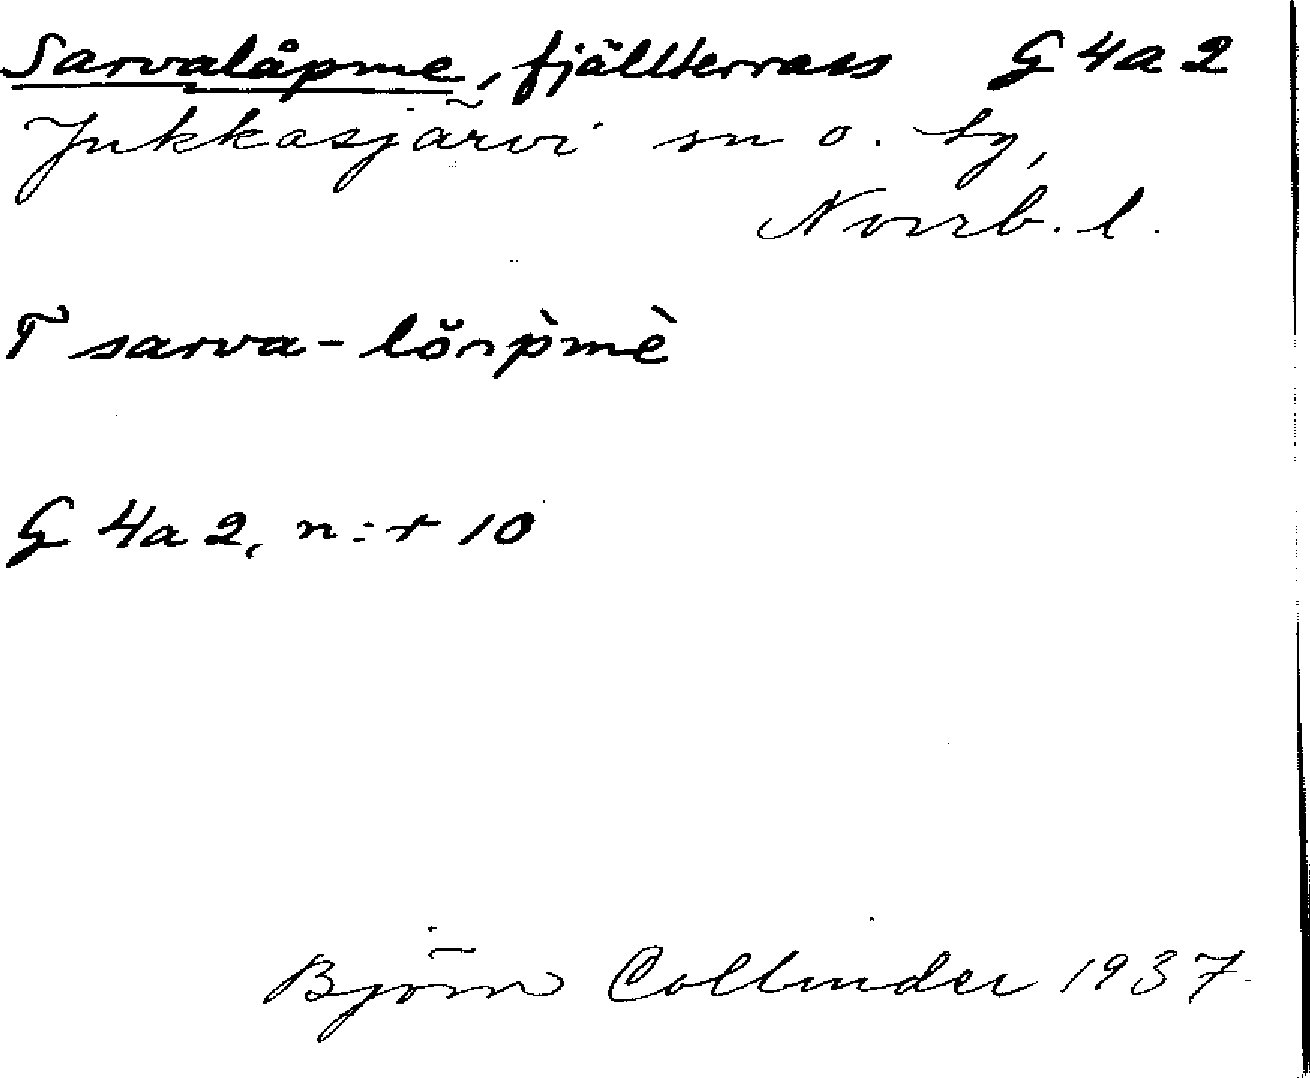 Sarvalåpme, fjällterrass G 4a 2
Jukkasjärvi sn o. tg,
Norrb. l.
T sarva-
G 4a 2, n:r 10
Björn Collinder 1937